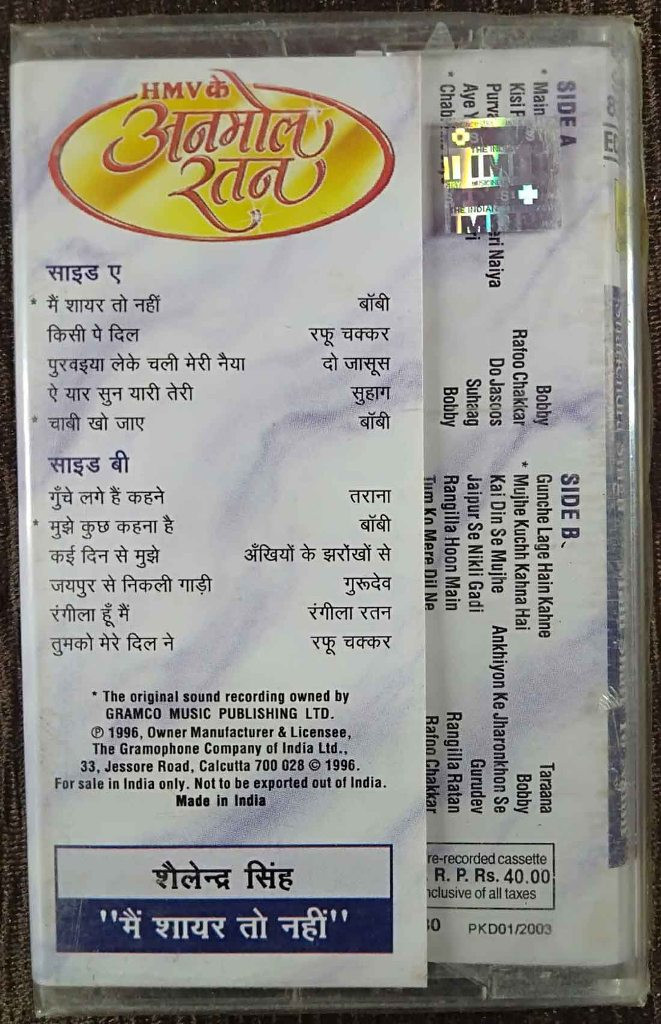 HMV के
अनमोल
रतन
साइड ए
* मैं शायर तो नहीं बॉबी
किसी पे दिल रफू चक्कर
पुरवइया लेके चली मेरी नैया दो जासूस
ऐ यार सुन यारी तेरी सुहाग
* चाबी खो जाए बॉबी
साइड बी
गुँचे लगे हैं कहने तराना
* मुझे कुछ कहना है बॉबी
कई दिन से मुझे अँखियों के झरोंखों से
जयपुर से निकली गाड़ी गुरूदेव
रंगीला हूँ मैं रंगीला रतन
तुमको मेरे दिल ने रफू चक्कर
* The original sound recording owned by
GRAMCO MUSIC PUBLISHING LTD.
℗ 1996, Owner Manufacturer & Licensee,
The Gramophone Company of India Ltd.,
33, Jessore Road, Calcutta 700 028 © 1996.
For sale in India only. Not to be exported out of India.
Made in India
शैलेन्द्र सिंह
"मैं शायर तो नहीं"
SIDE A
* Main Bobby
Kisi Rafoo Chakkar
Naiya Do Jasoos
Aye Suhaag
* Bobby
SIDE B
Gunche Lage Hain Kahne Taraana
* Mujhe Kuchh Kahna Hai Bobby
Kai Din Se Mujhe Ankhiyon Ke Jharonkhon Se
Jaipur Se Nikli Gadi Gurudev
Rangilla Hoon Main Rangilla Ratan
Tum Ko Mere Dil Ne Rafoo Chakkar
re-recorded cassette
R. P. Rs. 40.00
nclusive of all taxes
PKD01/2003